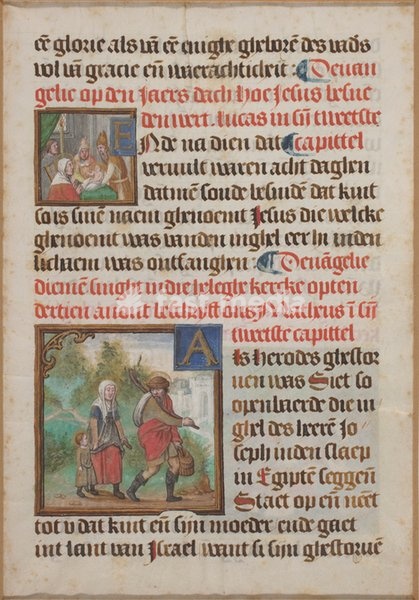 eē glorie als vā eē enighē gheborē des vad's
vol vā gracie eñ waerachticheit : Devan
gelie op den Jaers dach hoe Jesus besne
den wert. Lucas in sij tweetste
Ende na dien dat capittel
vervult waren acht daghen
datmē soude besnidē dat kint
so is sinē naem ghenoemt Jesus die welcke
ghenoemt was vanden inghel eer hi inden
lichaem was ontfanghen Devāgelie
diemē singht in die heleghe kercke opten
dertien avont
tweetste capittel
Als herodes ghestor
ven was Siet so
openbaerde die in
ghel des heerē Jo
seph inden slaep
in Egiptē seggeñ
Staet op eñ neēt
tot v dat kint eñ sijn moeder ende gaet
int lant van Israel want si sijn ghestorvē